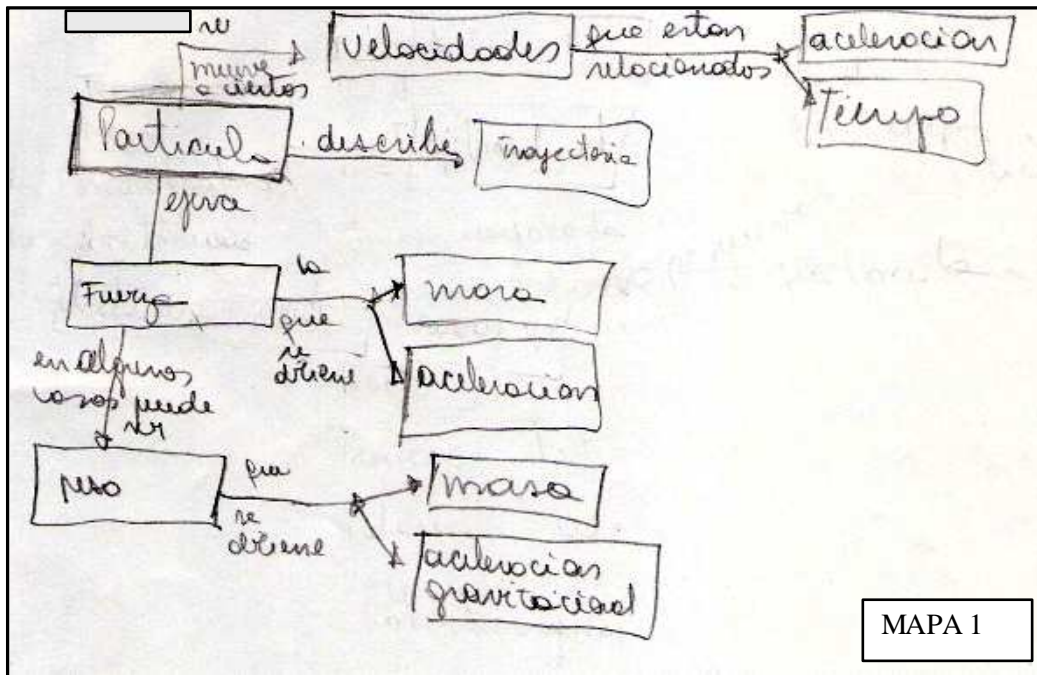 se
mueve
a ciertos
Velocidades
que estan
relacionados
aceleracion
Tiempo
Particula
describe
trayectoria
ejerce
Fuerza
la
que
se
obtiene
masa
aceleracion
en algunos
casos puede
ser
peso
que
se
obtiene
masa
aceleracion
gravitaciond
MAPA 1